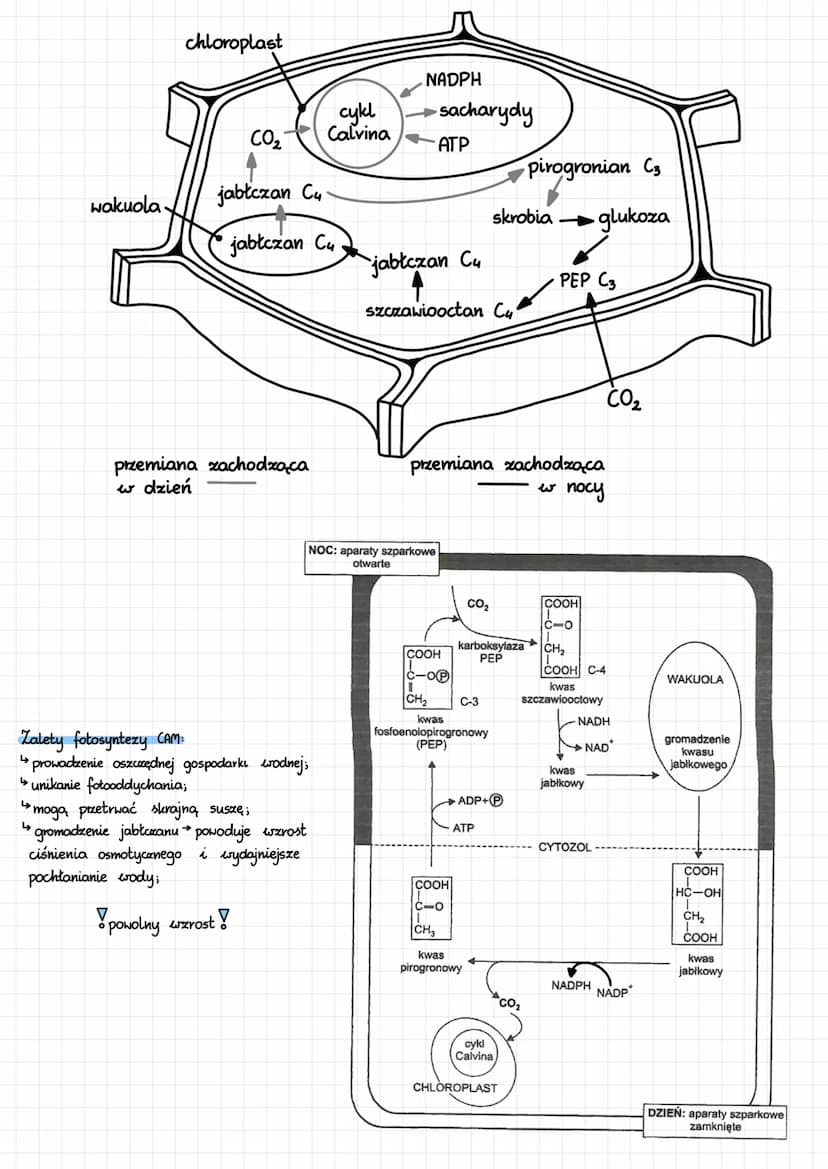 chloroplast
NADPH
cykl
Calvina
sacharydy
CO₂
ATP
pirogronian C₃
jabłczan C₄
wakuola
skrobia
glukoza
jabłczan C₄
jabłczan C₄
PEP C₃
szczawiooctan C₄
CO₂
przemiana zachodząca
w dzień
przemiana zachodząca
w nocy
NOC: aparaty szparkowe
otwarte
CO₂
COOH
C=O
CH₂
COOH C-4
karboksylaza
PEP
COOH
C—O℗
CH₂
C-3
kwas
fosfoenolopirogronowy
(PEP)
kwas
szczawiooctowy
NADH
NAD⁺
kwas
jabłkowy
WAKUOLA
gromadzenie
kwasu
jabłkowego
Zalety fotosyntezy CAM:
↳ prowadzenie oszczędnej gospodarki wodnej;
↳ unikanie fotooddychania;
↳ mogą przetrwać skrajną suszę;
↳ gromadzenie jabłczanu → powoduje wzrost
ciśnienia osmotycznego i wydajniejsze
pochłanianie wody;
! powolny wzrost !
ADP+℗
ATP
CYTOZOL
COOH
C=O
CH₃
kwas
pirogronowy
COOH
HC—OH
CH₂
COOH
kwas
jabłkowy
NADPH NADP⁺
CO₂
cykl
Calvina
CHLOROPLAST
DZIEŃ: aparaty szparkowe
zamknięte